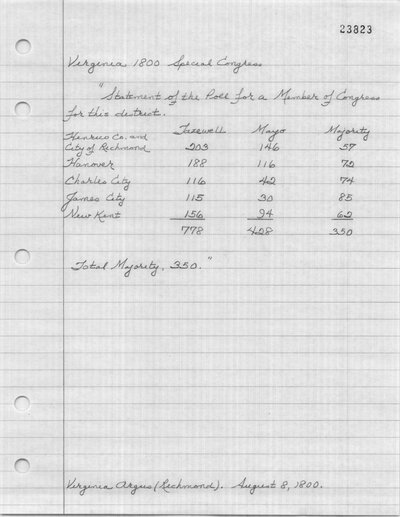 23823
Virginia 1800 Special Congress
"Statement of the Poll for a Member of Congress
for this district.
Tazewell Mayo Majority
Henrico Co. and
City of Richmond 203 146 57
Hanover 188 116 72
Charles City 116 42 74
James City 115 30 85
New Kent 156 94 62
778 428 350
Total Majority, 350."
Virginia Argus (Richmond). August 8, 1800.